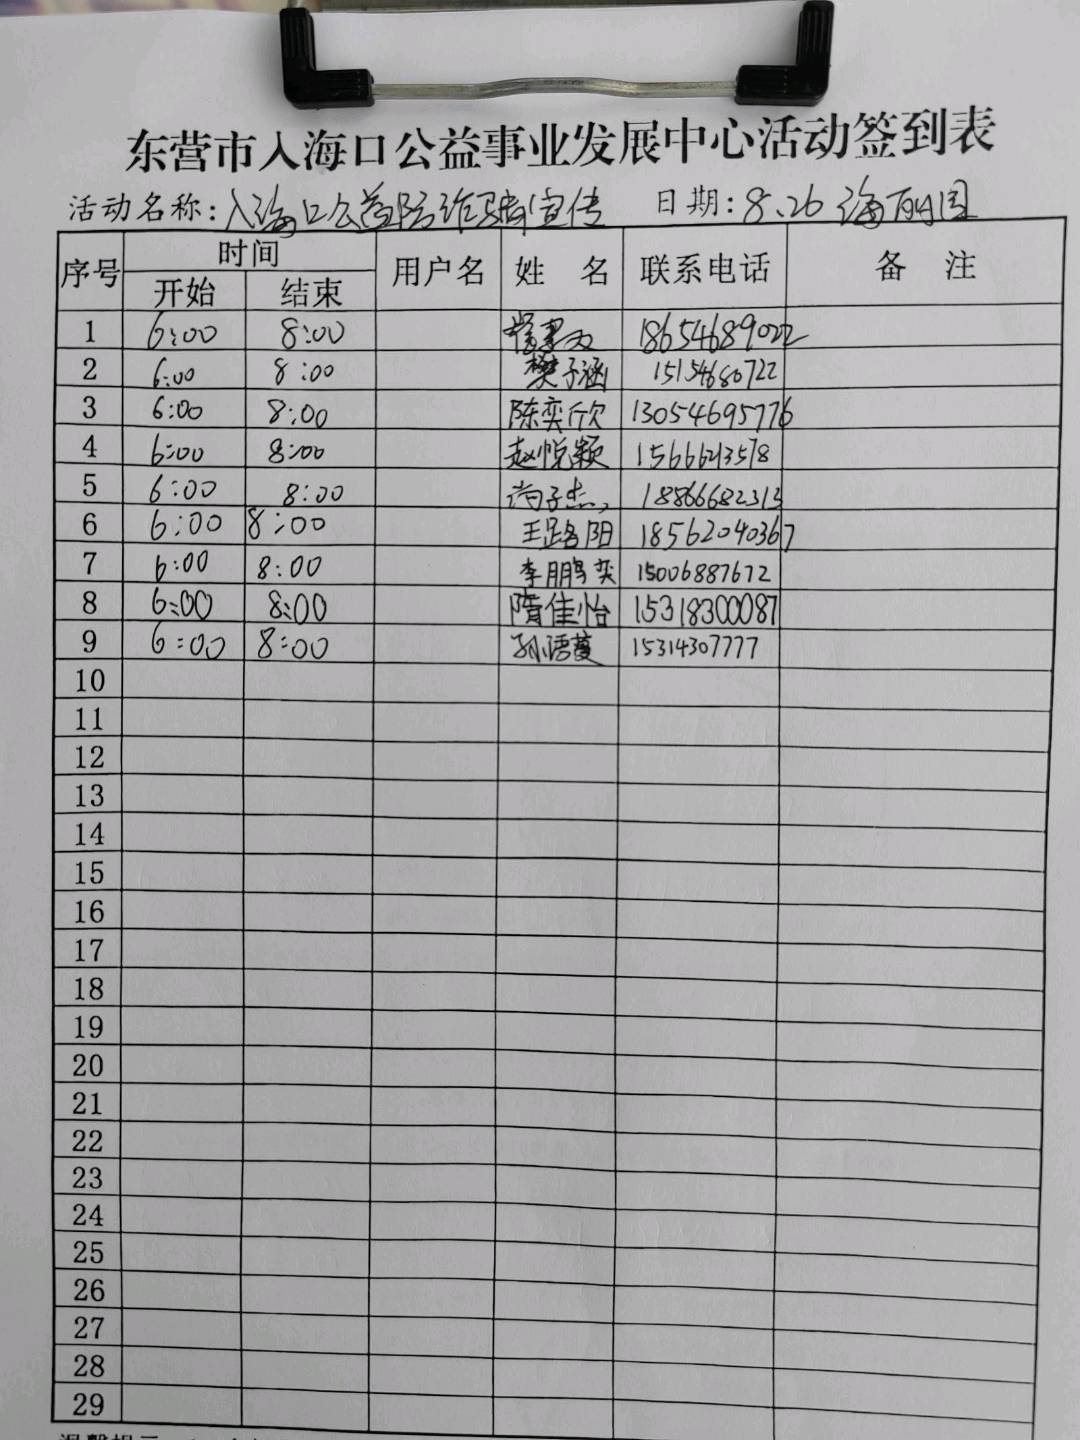 东营市入海口公益事业发展中心活动签到表
活动名称：入海口公益防诈骗宣传 日期：8.26 海丽园
序号 时间 用户名 姓 名 联系电话 备 注
开始 结束
1 6:00 8:00 18654689022
2 6:00 8:00 樊子涵 15154680722
3 6:00 8:00 陈奕欣 13054695776
4 6:00 8:00 赵悦颖 15666213578
5 6:00 8:00 尚子杰 18866682313
6 6:00 8:00 王路阳 18562040367
7 6:00 8:00 李鹏奕 15006887672
8 6:00 8:00 隋佳怡 15318300087
9 6:00 8:00 孙语蔓 15314307777
10
11
12
13
14
15
16
17
18
19
20
21
22
23
24
25
26
27
28
29